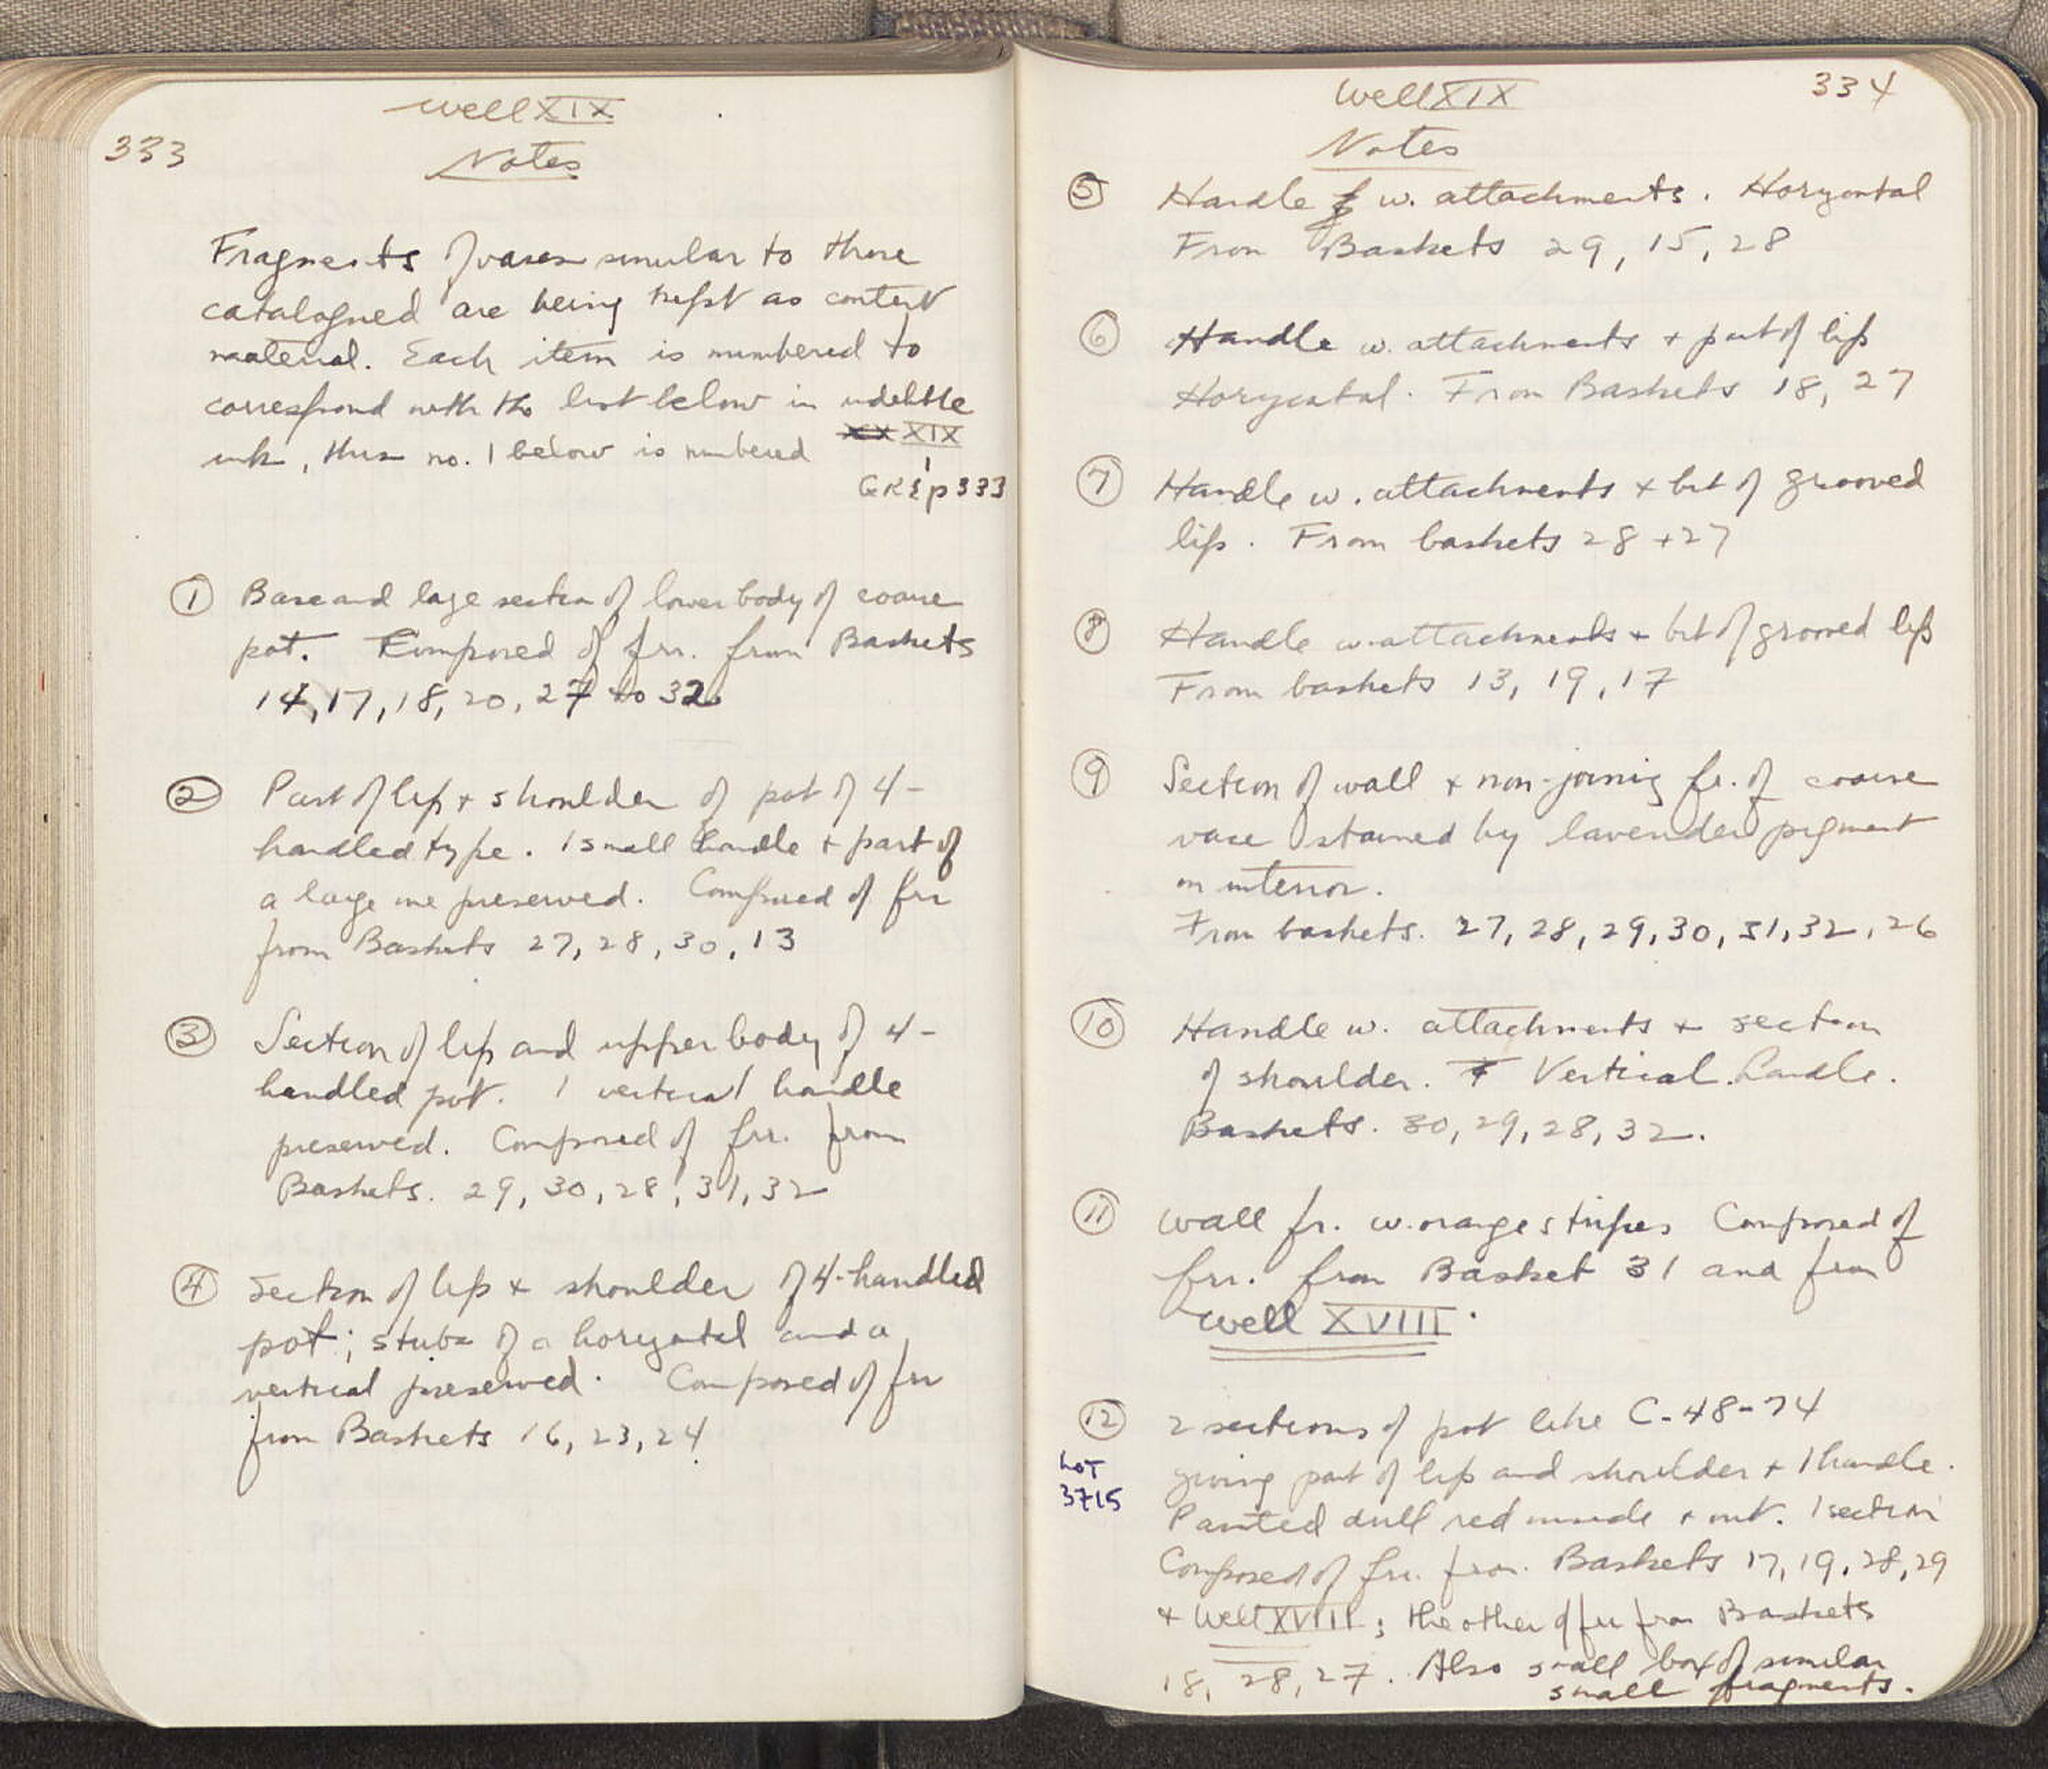 333
Well XIX
Notes
Fragments of vases similar to those
catalogued are being kept as context
material. Each item is numbered to
correspond with the list below in indelible
ink, thus no. 1 below is numbered XX XIX
1
GRS p 333
① Base and large section of lower body of coarse
pot. Composed of frr. from Baskets
14, 17, 18, 20, 27 to 32.
② Part of lip + shoulder of pot of 4-
handled type. 1 small handle + part of
a large one preserved. Composed of frr
from Baskets 27, 28, 30, 13
③ Section of lip and upper body of 4-
handled pot. 1 vertical handle
preserved. Composed of frr. from
Baskets. 29, 30, 28, 31, 32
④ Section of lip + shoulder of 4-handled
pot; stubs of a horizontal and a
vertical preserved. Composed of frr
from Baskets 16, 23, 24
Well XIX
334
Notes
⑤ Handle w. attachments. Horizontal
From Baskets 29, 15, 28
⑥ Handle w. attachments + part of lip
Horizontal. From Baskets 18, 27
⑦ Handle w. attachments + bit of grooved
lip. From baskets 28 + 27
⑧ Handle w. attachments + bit of grooved lip
From baskets 13, 19, 17
⑨ Section of wall + non-joining fr. of coarse
vase stained by lavender pigment
on interior.
From baskets. 27, 28, 29, 30, 31, 32, 26
⑩ Handle w. attachments + section
of shoulder. Vertical handle.
Baskets. 30, 29, 28, 32.
⑪ Wall fr. w. orange stripes Composed of
frr. from Basket 31 and from
Well XVIII.
⑫ 2 sections of pot like C-48-74
Lot
3715
giving part of lip and shoulder + 1 handle.
Painted dull red inside + out. 1 section
Composed of frr. from. Baskets 17, 19, 28, 29
+ Well XVIII; the other of frr from Baskets
18, 28, 27. Also small box of similar
small fragments.